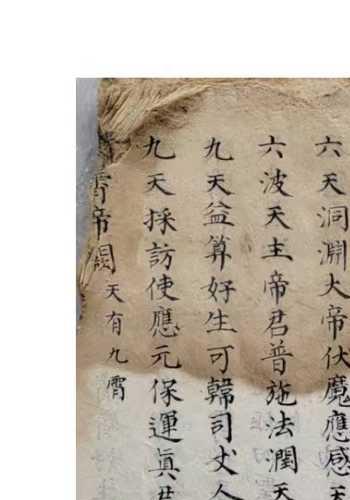 六天洞淵大帝伏魔應感天
六波天主帝君普施法潤天
九天益算好生可韓司丈人
九天採訪使應元保運眞君
霄帝闕天有九霄